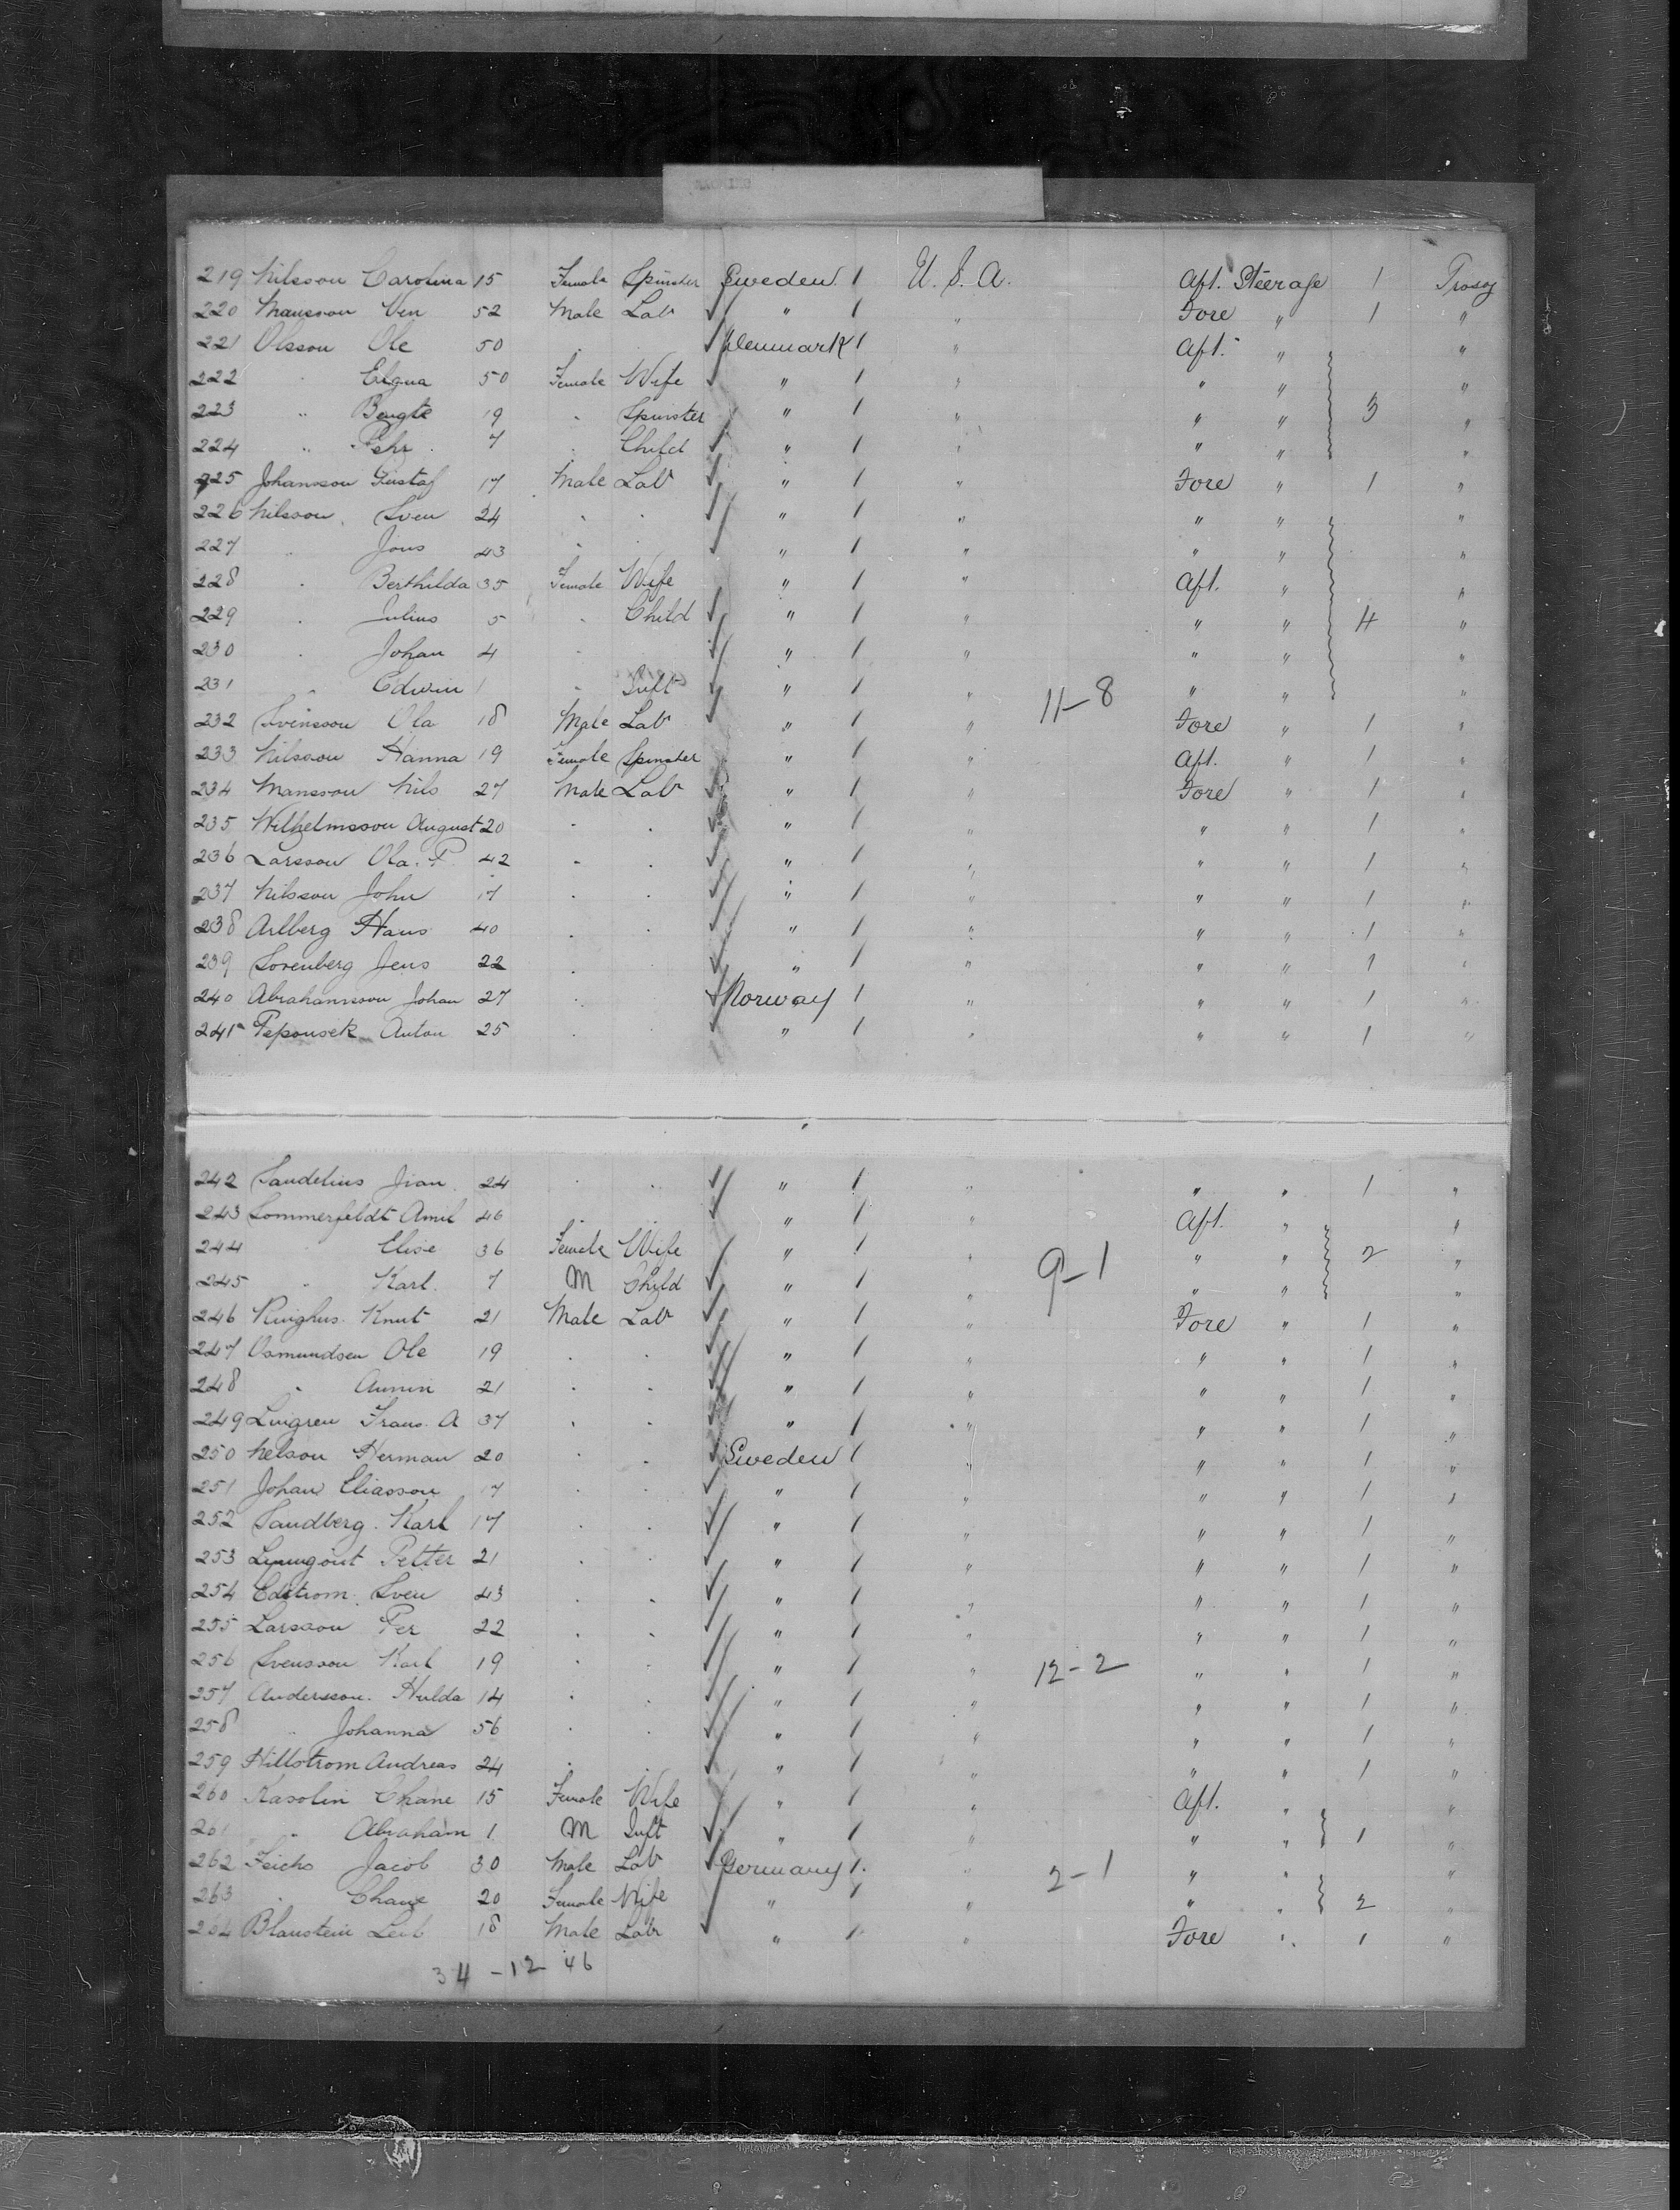 219 Nilsson Carolina 15 Female Spinster Sweden 1 U.S.A. Aft. Steerage 1
220 Mansson 52 Male Lab " 1 " Fore " 1 "
221 Olsson Ole 50 . . Denmark 1 " Aft. " "
222 . 50 Female Wife " 1 " " " "
223 " Bengte 19 . Spinster " 1 " " " 3 "
224 " Pehr 7 . Child " 1 " " " "
225 Johansson Gustaf 17 Male Lab " 1 " Fore " 1 "
226 Nilsson Sven 24 . . " 1 " " " "
227 . Jons 43 . . " 1 " " " "
228 . Berthilda 35 Female Wife " 1 " Aft. " "
229 . Julius 5 . Child " 1 " " " 4 "
230 . Johan 4 . " 1 " " " "
231 " Edwin 1 . Inft " 1 " 11-8 " " "
232 Svensson Ola 18 Male Lab " 1 " Fore " 1 "
233 Nilsson Hanna 19 Female Spinster " 1 " Aft. " 1 "
234 Mansson Nils 27 Male Lab " 1 " Fore " 1 "
235 Wilhelmsson August 20 . . " 1 " " " 1 "
236 Larsson Ola. P. 42 . . " 1 " " " 1 "
237 Nilsson John 17 . . " 1 " " " 1 "
238 Arlberg Hans 40 . . " 1 " " " 1 "
239 Sorenberg Jens 22 . . " 1 " " " 1 "
240 Abrahamsson Johan 27 . Norway 1 " " " 1 "
241 Peponsek Anton 25 . " 1 " " " 1 "
242 Sandelius 24 . . " 1 " " " 1 "
243 Sommerfeldt Amil 46 . . " 1 " Aft. " "
244 Elise 36 Female Wife " 1 " " " 2 "
245 " Karl. 7 M Child " 1 " 9-1 " " "
246 Ringhus Knut 21 Male Lab " 1 " Fore " 1 "
247 Osmundsen Ole 19 . . " 1 " " " 1 "
248 " 21 . . " 1 " " " 1 "
249 Lingren Frans. A 37 . . " 1 " " " 1 "
250 Nelson Herman 20 . . Sweden 1 " " " 1 "
251 Johan Eliasson 17 . . " 1 " " " 1 "
252 Sandberg. Karl 17 . . " 1 " " " 1 "
253 Petter 21 . . " 1 " " " 1 "
254 Edstrom. Sven 43 . . " 1 " " " 1 "
255 Larsson Per 22 . . " 1 " " " 1 "
256 Svensson Karl 19 . . " 1 " 12-2 " " 1 "
257 Andersson. Hulda 14 . . " 1 " " " 1 "
258 " Johanna 56 . . " 1 " " " 1 "
259 Hillstrom Andreas 24 . . " 1 " " " 1 "
260 Kasolin Chane 15 Female Wife " 1 " Aft. " "
261 " Abraham 1 M Inft " 1 " " 1 "
262 Feichs Jacob 30 Male Lab Germany 1 " 2-1 " " "
263 . Chane 20 Female Wife " 1 " " " 2 "
264 Blaustein Leib 18 Male Labr " 1 " Fore " 1 "
34 -12 46